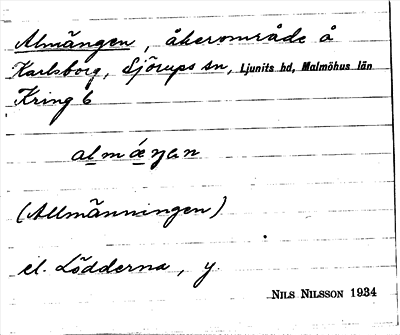 Almängen, åkerområde å
Karlsborg, Sjörups sn, Ljunits hd, Malmöhus län
Kring 6
(Allmänningen)
el. Lödderna, y.
NILS NILSSON 1934